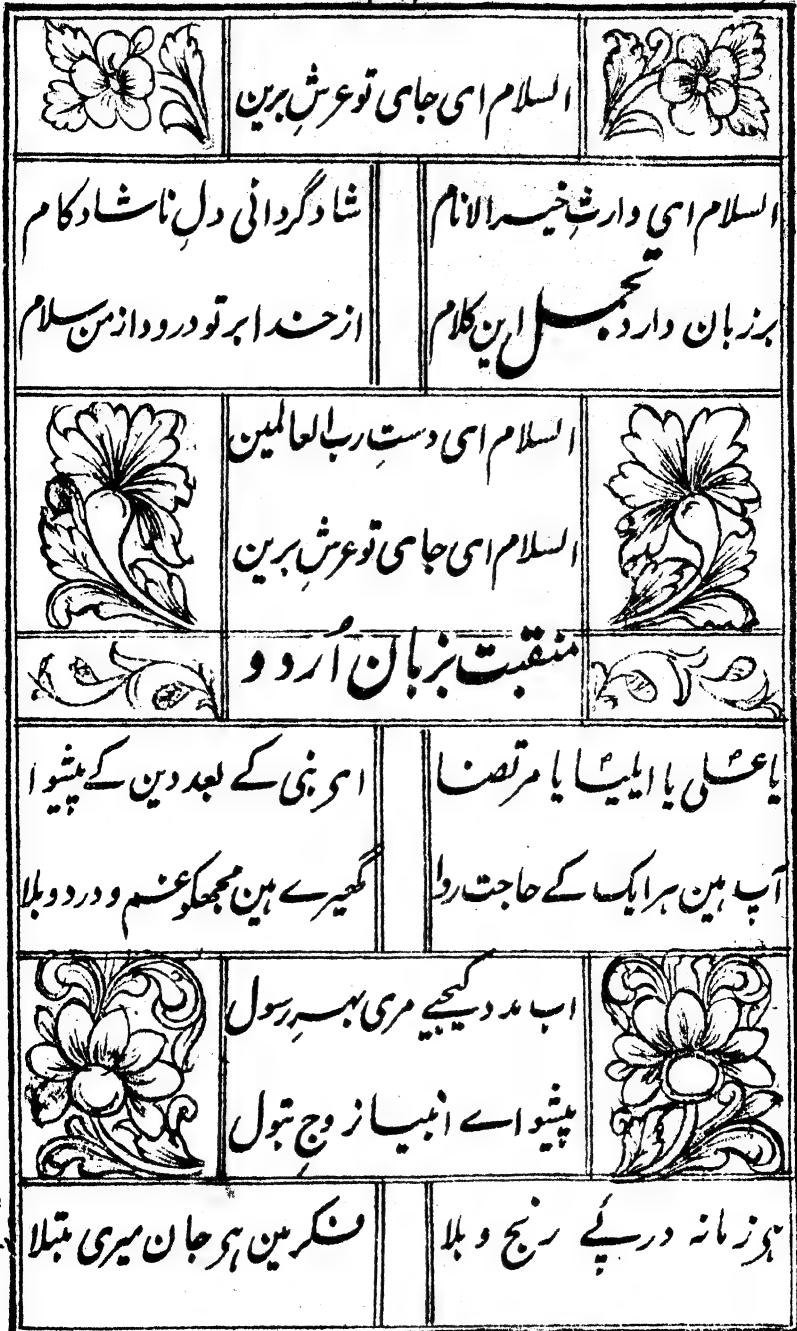 السلام ای جای تو عرشِ برین
السلام ای وارثِ خیر الانام شاد گردانی دلِ ناشاد کام
بر زبان دارد تجمل این کلام از خدا بر تو درود از من سلام
السلام ای دستِ رب العالمین
السلام ای جای تو عرشِ برین
منقبت بزبان اُردو
یا علی یا ایلیا یا مرتضا ای نبی کے بعد دین کے پیشوا
آپ ہین ہر ایک کے حاجت روا گھیرے ہین مجھکو غم و درد و بلا
اب مدد کیجیے مری بہرِ رسول
پیشواے انبیا زوجِ بتول
ہی زمانہ درپئے رنج و بلا فکر مین ہی جان میری مبتلا